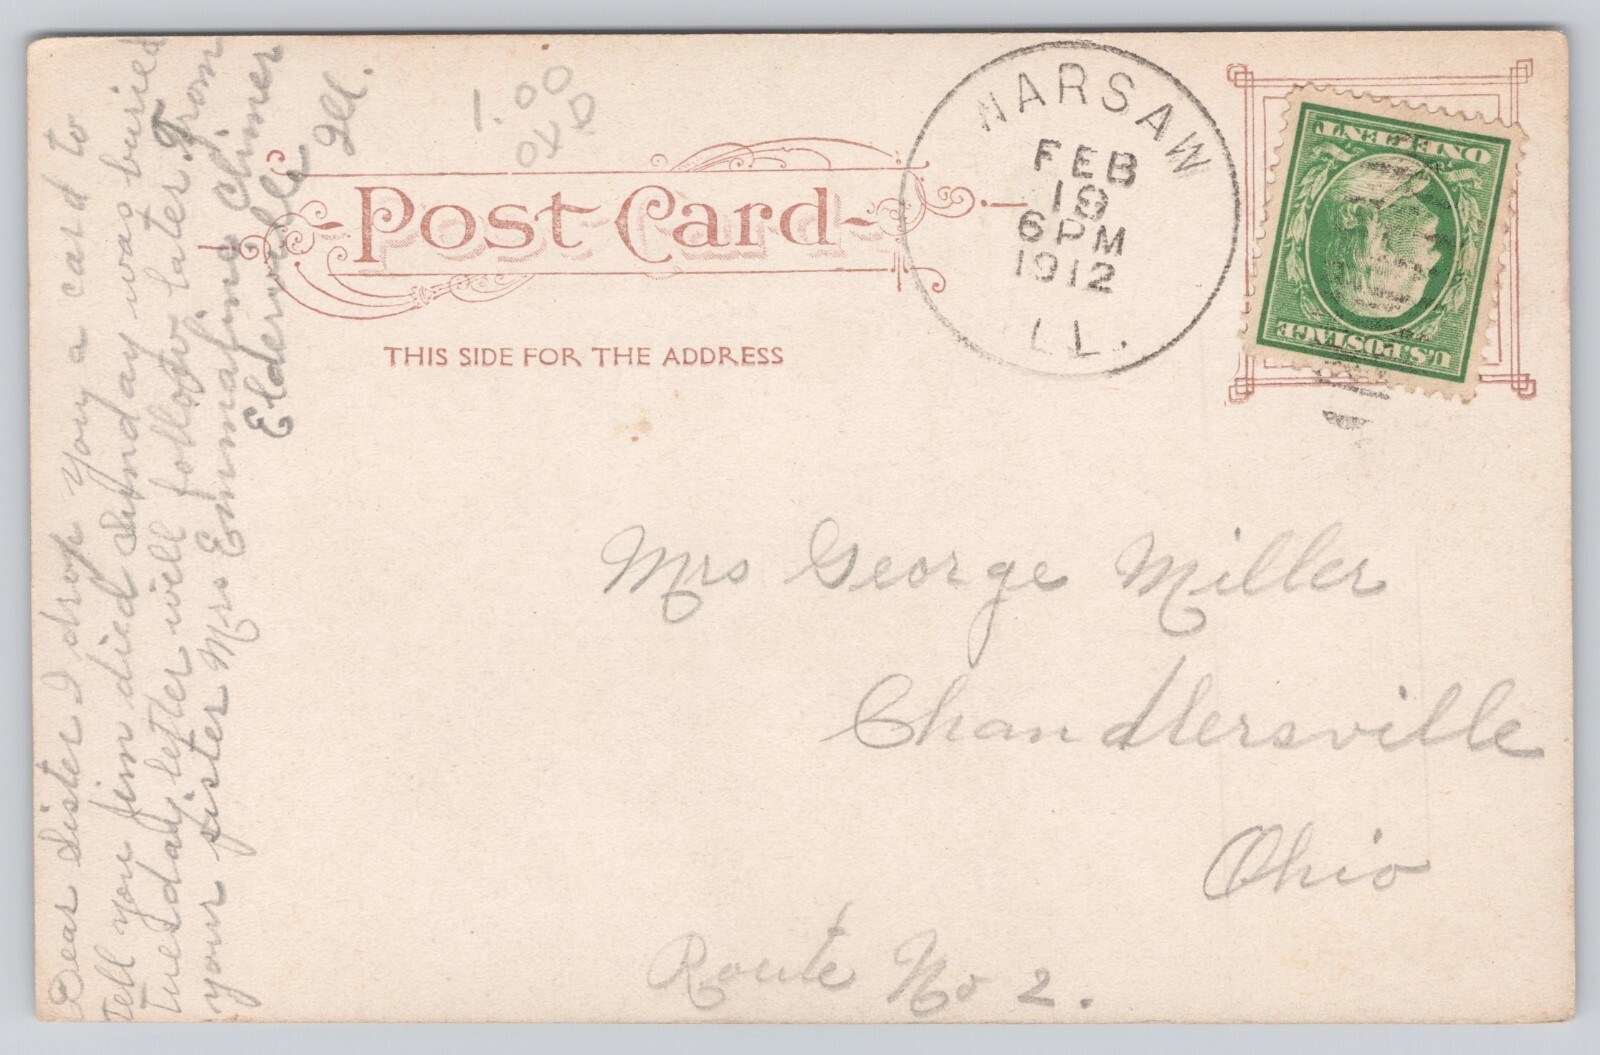 Dear Sister I drop you a card to
Tell you Jim died Sunday was buried
Tuesday letter will follow later From
your sister Mrs Emmafine Chimer
Elderville
Ill.
1.00
Post Card
THIS SIDE FOR THE ADDRESS
WARSAW
FEB
19
6 PM
1912
ILL.
ONE CENT
U.S. POSTAGE
Mrs George Miller
Chandlersville
Ohio
Route No 2.